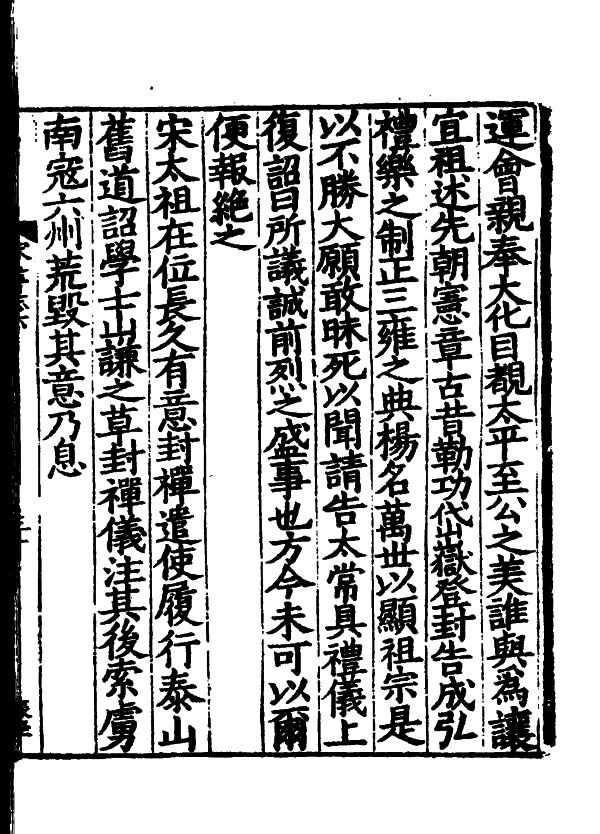 運會親奉大化目覩太平至公之美誰與為讓
宜祖述先朝憲章古昔勒功岱嶽登封告成弘
禮樂之制正三雍之典楊名萬世以顯祖宗是
以不勝大願敢昧死以聞請告太常具禮儀上
復詔曰所議誠前烈之盛事也方今未可以爾
便報絶之
宋太祖在位長久有意封禪遣使履行泰山
舊道詔學士山謙之草封禪儀注其後索虜
南寇六州荒毀其意乃息